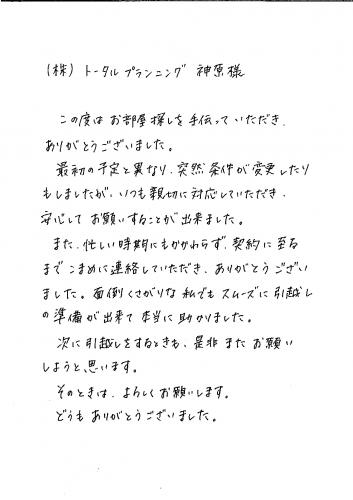 (株)トータルプランニング 神原様
この度はお部屋探しを手伝っていただき、
ありがとうございました。
最初の予定と異なり、突然条件が変更したり
もしましたが、いつも親切に対応していただき、
安心してお願いすることが出来ました。
また、忙しい時期にもかかわらず、契約に至る
までこまめに連絡していただき、ありがとうござい
ました。面倒くさがりな私でもスムーズに引越し
の準備が出来て本当に助かりました。
次に引越しをするときも、是非またお願い
しようと思います。
そのときは、よろしくお願いします。
どうもありがとうございました。